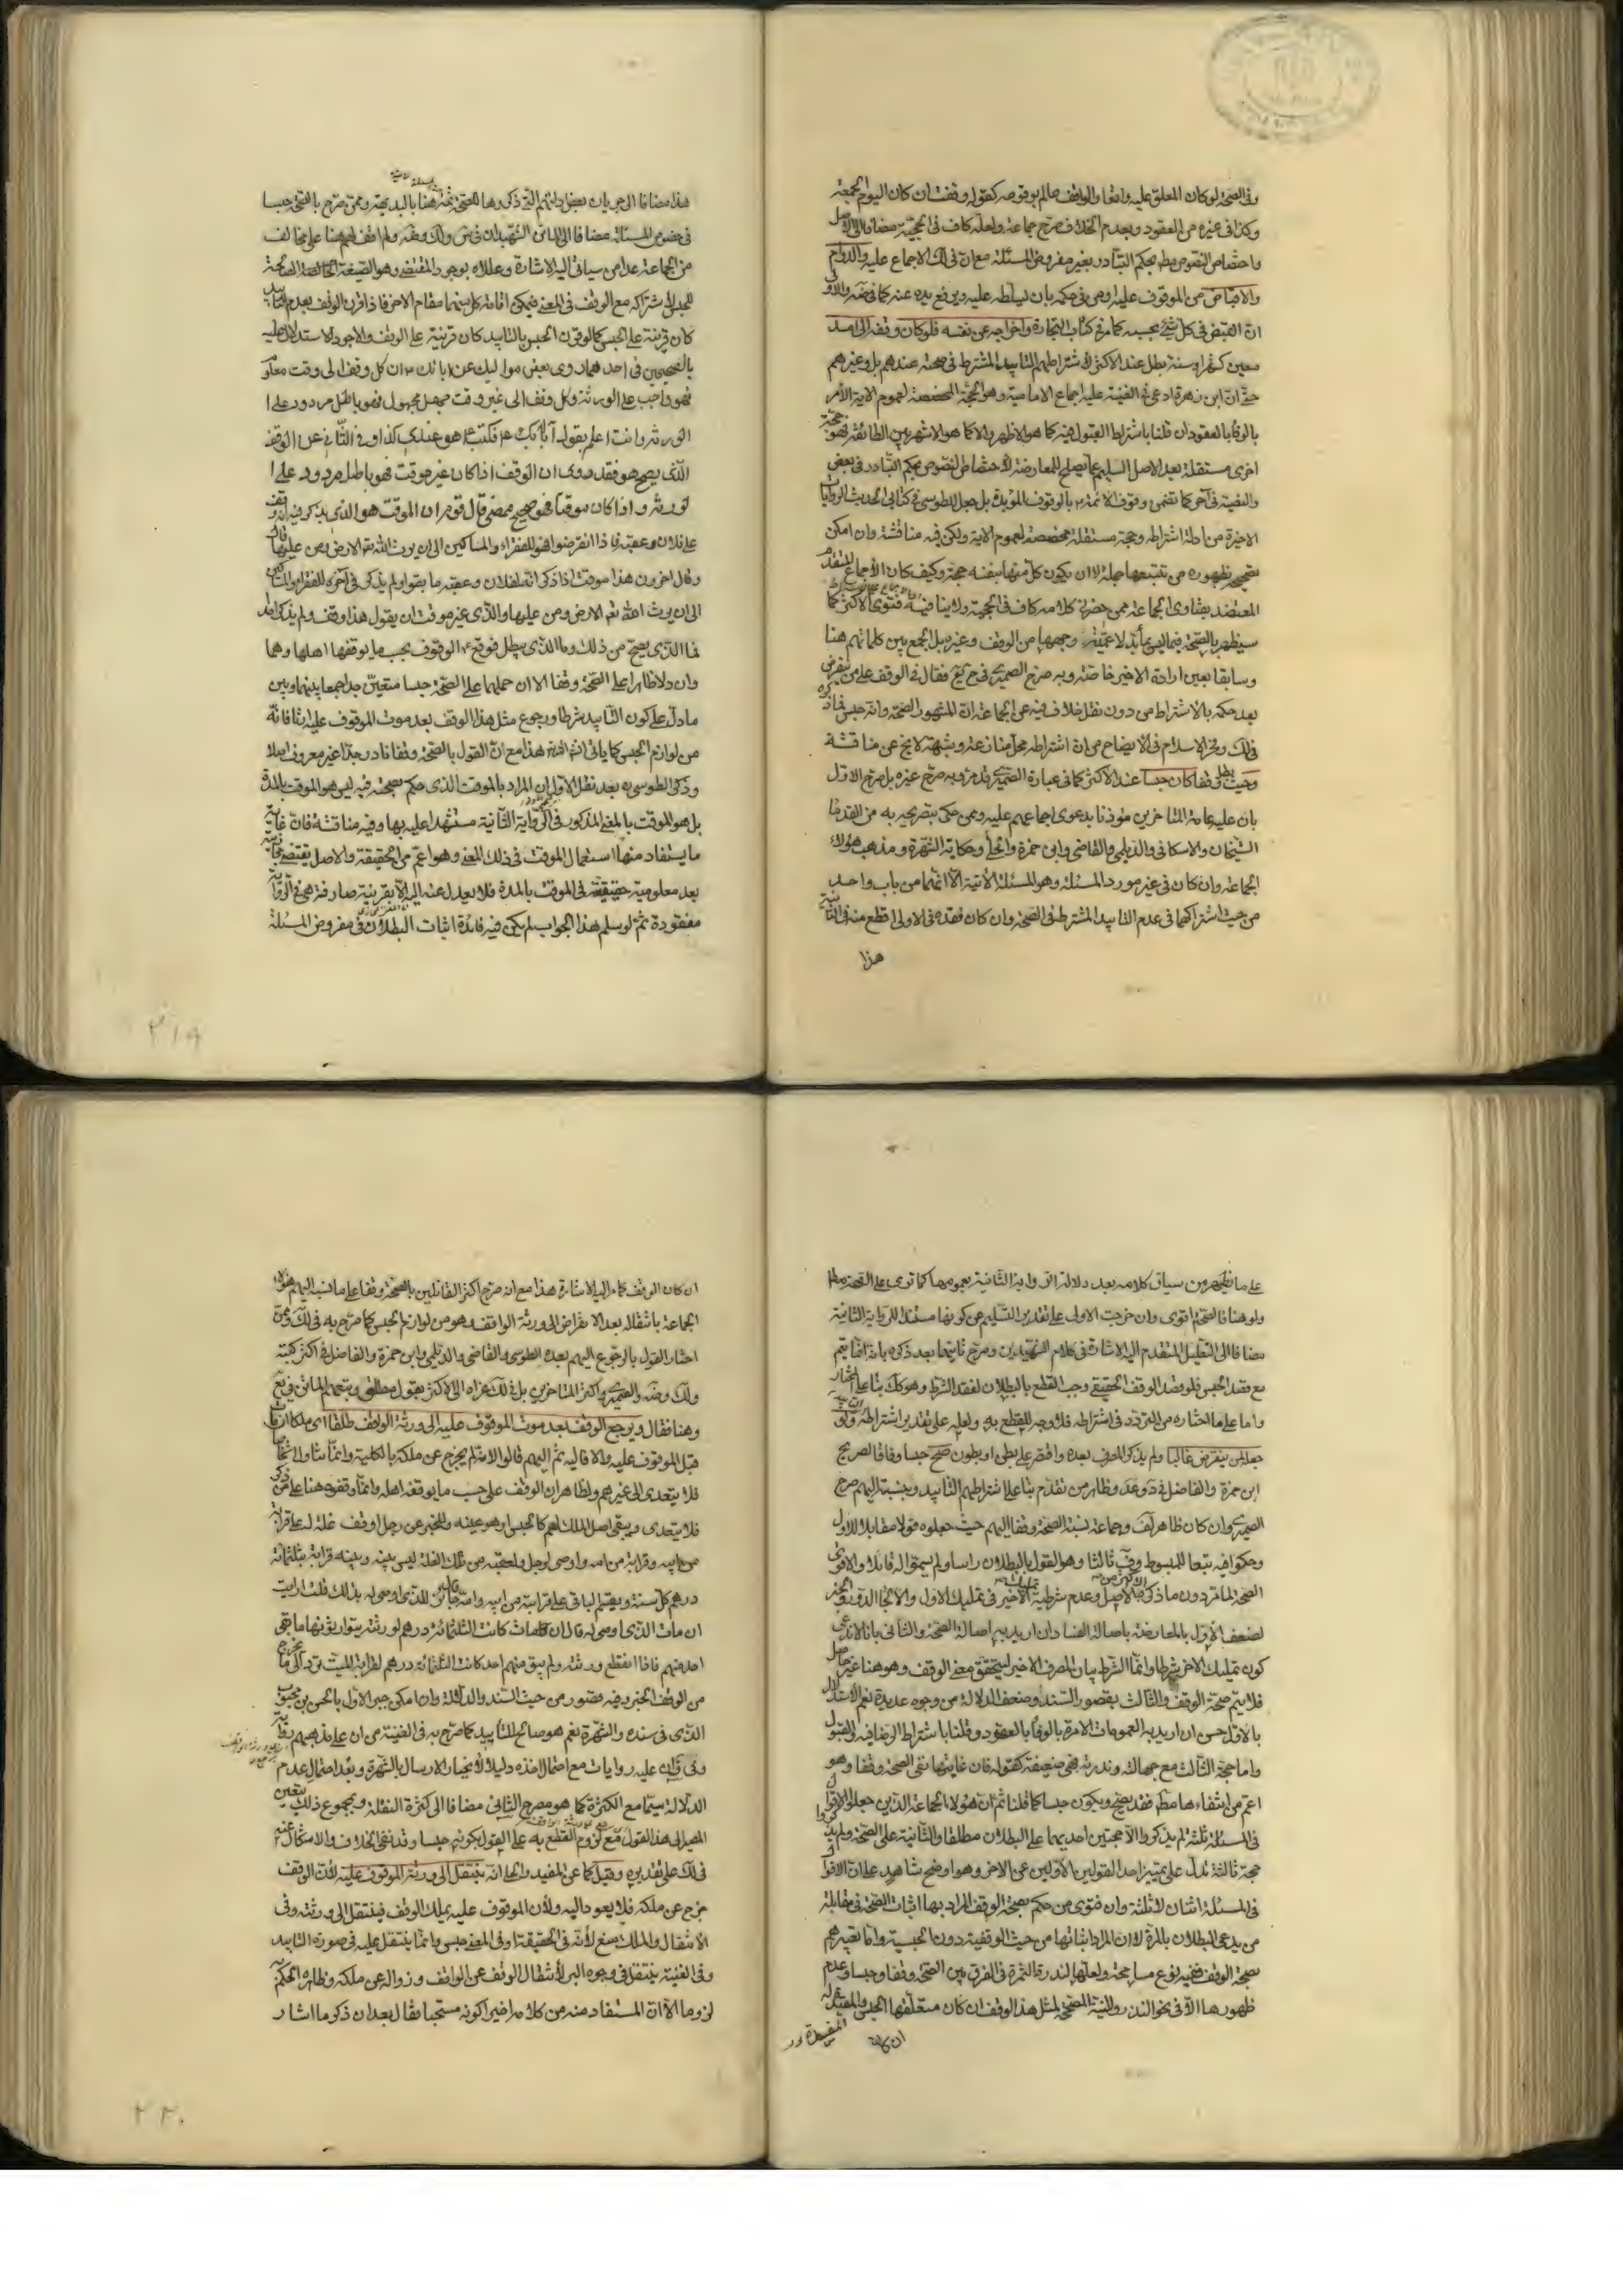 وفي الصحة لو كان المعلق عليه واقعا والواقف عالم بوقوعه كقوله وقفت ان كان اليوم الجمعة
وكذا في غيره من العقود وبعدم الخلاف صرح جماعة ولعله كاف في الحجية مضافا الى الاصل
واختصاص النصوص بحكم التبادر بغير مفروض المسئلة مع ان في ذلك الاجماع عليه والدوام
والاقباض من الموقوف عليه او من في حكمه بان يسلطه عليه ويرفع يده عنه
ان القبض في كل شئ بحسبه كما مر في كتاب التجارة واخراجه عن نفسه فلو كان وقفه الى امد
معين كشهر او سنة بطل عند الاكثر لاشتراطهم التابيد المشترط في صحته عندهم بل وغيرهم
حتى ان ابن زهرة ادعى في الغنية عليه اجماع الامامية وهو الحجة المخصصة لعموم الاية الامر
بالوفاء بالعقود ان قلنا باشتراط القبول فيه كما هو الاظهر والا كما هو الاشهر بين الطائفة فهو حجة
اخرى مستقلة بعد الاصل السليم عما يصلح للمعارضة لاختصاص النصوص بحكم التبادر في بعض
والغنية في آخر كما تقضي وقوف الائمة بالوقوف المؤبدة بل جعل الطوسي في كتابي الحديث الروايات
الاخيرة من ادلة اشتراطه وحجة مستقلة مخصصة لعموم الاية ولكن فيه مناقشة وان امكن
تصحيحه بظهوره من تتبعها جملة لا ان يكون كل منها بنفسه حجة وكيف كان الاجماع المتقدم
المعتضد بفتاوى الجماعة ممن حضرني كلامه كاف في الحجية ولا ينافيه فتوى الاكثر كما
سيظهر بالصحة فيما ليس بمأبد لاعميته وجمعها من الوقف وغيره بل الجمع بين كلماتهم هنا
وسابقا يعين ارادة الاخير خاصة وبه صرح الصيمري فقال في الوقف على من ينقرض
بعد حكمه بالاشتراط من دون نقل خلاف فيه عن الجماعة ان المشهور الصحة وانه حبس
ذلك وفخر الاسلام في الايضاح من ان اشتراطه محل منازعة وشبهة لا يخ عن مناقشة
وحيث بطل وقفا كان حبسا عند الاكثر كما في عبارة الصيمري قد مر وبه صرح غيره بل صرح الاول
بان عليه عامة المتاخرين مؤذنا بدعوى اجماعهم عليه وممن حكى بتصريحه به من القدماء
الشيخان والاسكافي والديلمي والقاضي وابن حمزة والحلي وحكاية الشهرة ومذهب هؤلاء
الجماعة وان كان في غير مورد المسئلة وهو المسئلة الاتية الا انهما من باب واحد
من حيث اشتراكهما في عدم التابيد المشترط في الصحة وان كان فقده في الاولى اقطع منه في الثانية
هذا
هذا مضافا الى جريان بعض ادلتهم التي ذكروها للصحة ثمة هنا بالبديهة وممن صرح بالصحة حبسا
في خصوص المسئلة مضافا الى الماتن الشهيدان ولم اقف لهم هنا على مخالف
من الجماعة عدا من سياتي اليه الاشارة وعللاه بوجود المقتضي وهو الصيغة الصالحة
للحبس لاشتراكه مع الوقف في المعنى فيمكن اقامة كل بينهما مقام الاخر فاذا اقرن الوقف بعدم التابيد
كان قرينة على الحبس كما لو قرن الحبس بالتابيد كان قرينة على الوقف والاجود الاستدلال عليه
بالصحيحين في احدهما روى بعض مواليك عن ابائك ان كل وقف الى وقت معلوم
فهو واجب على الورثة وكل وقف الى غير وقت جهل مجهول فهو باطل مردود على ا
لورثة وانت اعلم بقول آبائك فكتب هو عندي كذا وفي الثاني عن الوقف
الذي يصح هو فقد روى ان الوقف اذا كان غير موقت فهو باطل مردود على ا
لورثة واذا كان موقتا فهو صحيح ممضى قال قوم ان الموقت هو الذي يذكر فيه انه وقف
على فلان وعقبه فاذا انقرضوا فهو للفقراء والمساكين الى ان يرث الله الارض ومن عليها قال
وقال اخرون هذا موقت اذا ذكر انه لفلان وعقبه ما بقوا ولم يذكر في آخره للفقراء والمساكين
الى ان يرث الله الارض ومن عليها والذي غير موقت ان يقول هذا وقف ولم يذكر احد
فما الذي يصح من ذلك وما الذي يبطل فوقع الوقوف بحسب ما يوقفها اهلها وهما
وان دلا ظاهرا على الصحة وقفا الا ان حملهما على الصحة حبسا متعين جدا جمعا بينهما وبين
ما دل على كون التابيد شرطا ورجوع مثل هذا الوقف بعد موت الموقوف عليه ارثا فانه
من لوازم الحبس كما ياتي هذا مع ان القول بالصحة وقفا نادر جدا غير معروف اصلا
وذكر الطوسي بعد نقل الاول ان المراد بالموقت الذي حكم بصحته فيه ليس هو الموقت بالمدة
بل هو الموقت بالمعنى المذكور في الرواية الثانية مستشهدا عليه بها وفيه مناقشة فان غاية
ما يستفاد منها استعمال الموقت في ذلك المعنى وهو اعم من الحقيقة والاصل يقتضي
بعد معلومية حقيقته في الموقت بالمدة فلا يعدل عنه اليه الا بقرينة صارفة هي في الرواية
مفقودة ثم لو سلم هذا الجواب لم يكن فيه فائدة اثبات البطلان في مفروض المسئلة
٢١٩
على ما يظهر من سياق كلامه بعد دلالة الرواية الثانية بعمومها كما ترى على الصحة مطلقا
ولو هنا فالصحة اقوى وان خرجت الاولى على تقدير التسليم عن كونها مستندا للرواية الثانية
مضافا الى التعليل المتقدم اليه الاشارة في كلام الشهيدين وصرح ثانيهما بعد ذكره بانه انما يتم
مع قصد الحبس فلو قصد الوقف الحقيقي وجب القطع بالبطلان لفقد الشرط وهو كك بناء على المختار
واما على ما اختاره من التردد في اشتراطه فلا وجه للقطع به ولعله على تقدير اشتراطه ولو
جعله لمن ينقرض غالبا ولم يذكر المصرف بعده واقتصر على بطن او بطون صح حبسا وفاقا لصريح
ابن حمزة والفاضل وظاهر من تقدم بناء على اشتراطهم التابيد وبنسبته اليهم صرح
الصيمري وان كان ظاهر وجماعة نسبة الصحة وقفا اليهم حيث جعلوه قولا مقابلا للاول
وحكوا فيه تبعا للمبسوط ثالثا وهو القول بالبطلان راسا ولم يسموا له قائلا والاقوى
الصحة لما مر دون ما ذكر من الاصل وعدم شرطية الاخير في تمليك الاول
لضعف الاول بالمعارضة باصالة الفساد ان اريد به اصالة الصحة والثاني بانا لا ندعي
كون تمليك الاخير شرطا وانما الشرط بيان المصرف الاخير ليتحقق معنى الوقف وهو هنا غير حاصل
فلا يتم صحة الوقف والثالث بقصور السند وضعف الدلالة من وجوه عديدة نعم الاستدلال
بالاول حسن ان اريد به العمومات الامرة بالوفاء بالعقود وقلنا باشتراط الوقف فيه والقبول
واما حجة الثالث مع جهالته وندرته فهي ضعيفة كقوله فان غايتها نفي الصحة وقفا وهو
اعم من انتفاءها مطلقا فقد يصح ويكون حبسا كما قلنا ثم ان هؤلاء الجماعة الذين جعلوا الاقوال
في المسئلة ثلثة لم يذكروا الا حجتين احديهما على البطلان مطلقا والثانية على الصحة ولم يذكروا
حجة ثالثة تدل على تميز احد القولين الاولين عن الاخر وهو اوضح شاهد على ان الاقوال
في المسئلة اثنان لا ثلثة وان فتوى من حكم بصحة الوقف المراد بها اثبات الصحة في مقابلة
من يدعي البطلان بالمرة لا ان المراد اثباتها من حيث الوقفية دون الحبسية واما تعبيرهم
بصحة الوقف ففيه نوع مسامحة ولعلها لندرة الثمرة في الفرق بين الصحة وقفا وحبسا وعدم
ظهورها الا في نحو النذر والنية المصححة لمثل هذا الوقف ان كان متعلقها الحبس والمفسدة له
ان كان
ان كان الوقف كما مر اليه الاشارة هذا مع انه صرح اكثر القائلين بالصحة وقفا على ما نسبه اليهم هؤلاء
الجماعة بانتقاله بعد الانقراض الى ورثة الواقف وهو من لوازم الحبس كما صرح به في لك وممن
اختار القول بالرجوع اليهم بعده الطوسي والقاضي والديلمي وابن حمزة والفاضل في اكثر كتبه
ولك وضه والصيمري واكثر المتاخرين بل في لك عزاه الى الاكثر بقول مطلق وتبعهم الماتن في يع
وهنا فقال ويرجع الوقف بعد موت الموقوف عليه الى ورثة الواقف طلقا اي ملكا
قبل الموقوف عليه والا فاليه ثم اليهم قالوا لانه لم يخرج عن ملكه بالكلية وانما تناول اشخاصا
فلا يتعدى الى غيرهم ولظاهر ان الوقف على حسب ما يوقفه اهله وانما وقفوه هنا على من ذكر
فلا يتعدى ويبقى اصل الملك لهم كالحبس او هو عينه وللخبر عن رجل اوقف غلة له على قرابة
من ابيه وقرابة من امه واوصى لرجل ولعقبه من تلك الغلة ليس بينه وبينه قرابة بثلثمائة
درهم كل سنة ويقسم الباقي على قرابته من ابيه وامه قال جائز للذي اوصى له بذلك قلت ارايت
ان مات الذي اوصى له قال ان مات كانت الثلثمائة درهم لورثته يتوارثونها ما بقي
احد منهم فاذا انقطع ورثته ولم يبق منهم احد كانت الثلثمائة درهم لقرابة الميت ترد الى ما يخرج
من الوقف الخبر وفيه قصور من حيث السند والدلالة وان امكن جبر الاول بالحسن بن محبوب
الذي في سنده والشهرة نعم هو صالح للتاييد كما صرح به في الغنية من ان على مذهبهم رواية
وفي ان عليه روايات مع احتمال اخذه دليلا لانجبار الارسال بالشهرة وبعد احتمال عدم
الدلالة سيما مع الكثرة كما هو مصرح الثاني مضافا الى كثرة النقلة وبمجموع ذلك يتعين
المصير الى هذا القول مع لزوم القطع به على القول بكونه حبسا وقد نفى الخلاف والاشكال عنه
في لك على تقديره وقيل كما عن المفيد والحلي انه ينتقل الى ورثة الموقوف عليه لان الوقف
خرج عن ملكه فلا يعود اليه ولان الموقوف عليه يملك الوقف فينتقل الى ورثته وفي
الانتقال والملك منع لانه في الحقيقة وفي المعنى حبس وانما ينتقل عليه في صورة التابيد
وفي الغنية ينتقل في وجوه البر لانتقال الوقف عن الواقف وزواله عن ملكه وظاهره الحكم
لزوما الا ان المستفاد منه من كلامه اخيرا كونه مستحبا فقال بعد ان ذكر ما اشار
٢٢٠